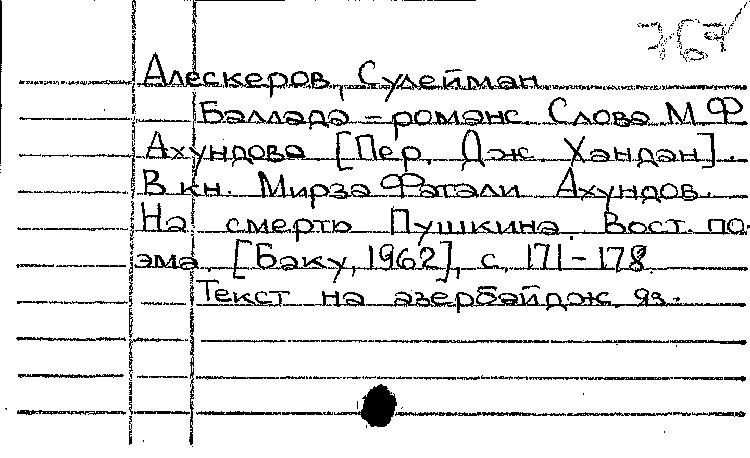 767
Алескеров, Сулейман.
Баллада – романс. Слова М.Ф.
Ахундова [Пер. Дж. Хандан].
В кн. Мирза Фатали Ахундов.
На смерть Пушкина. Вост. по-
эма. [Баку, 1962], с. 171–178.
Текст на азербайдж. яз.